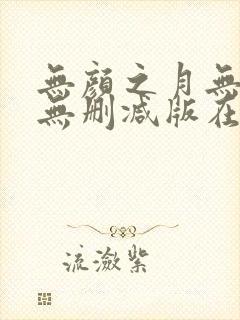 無顏之月無
無刪減版在
流潋紫